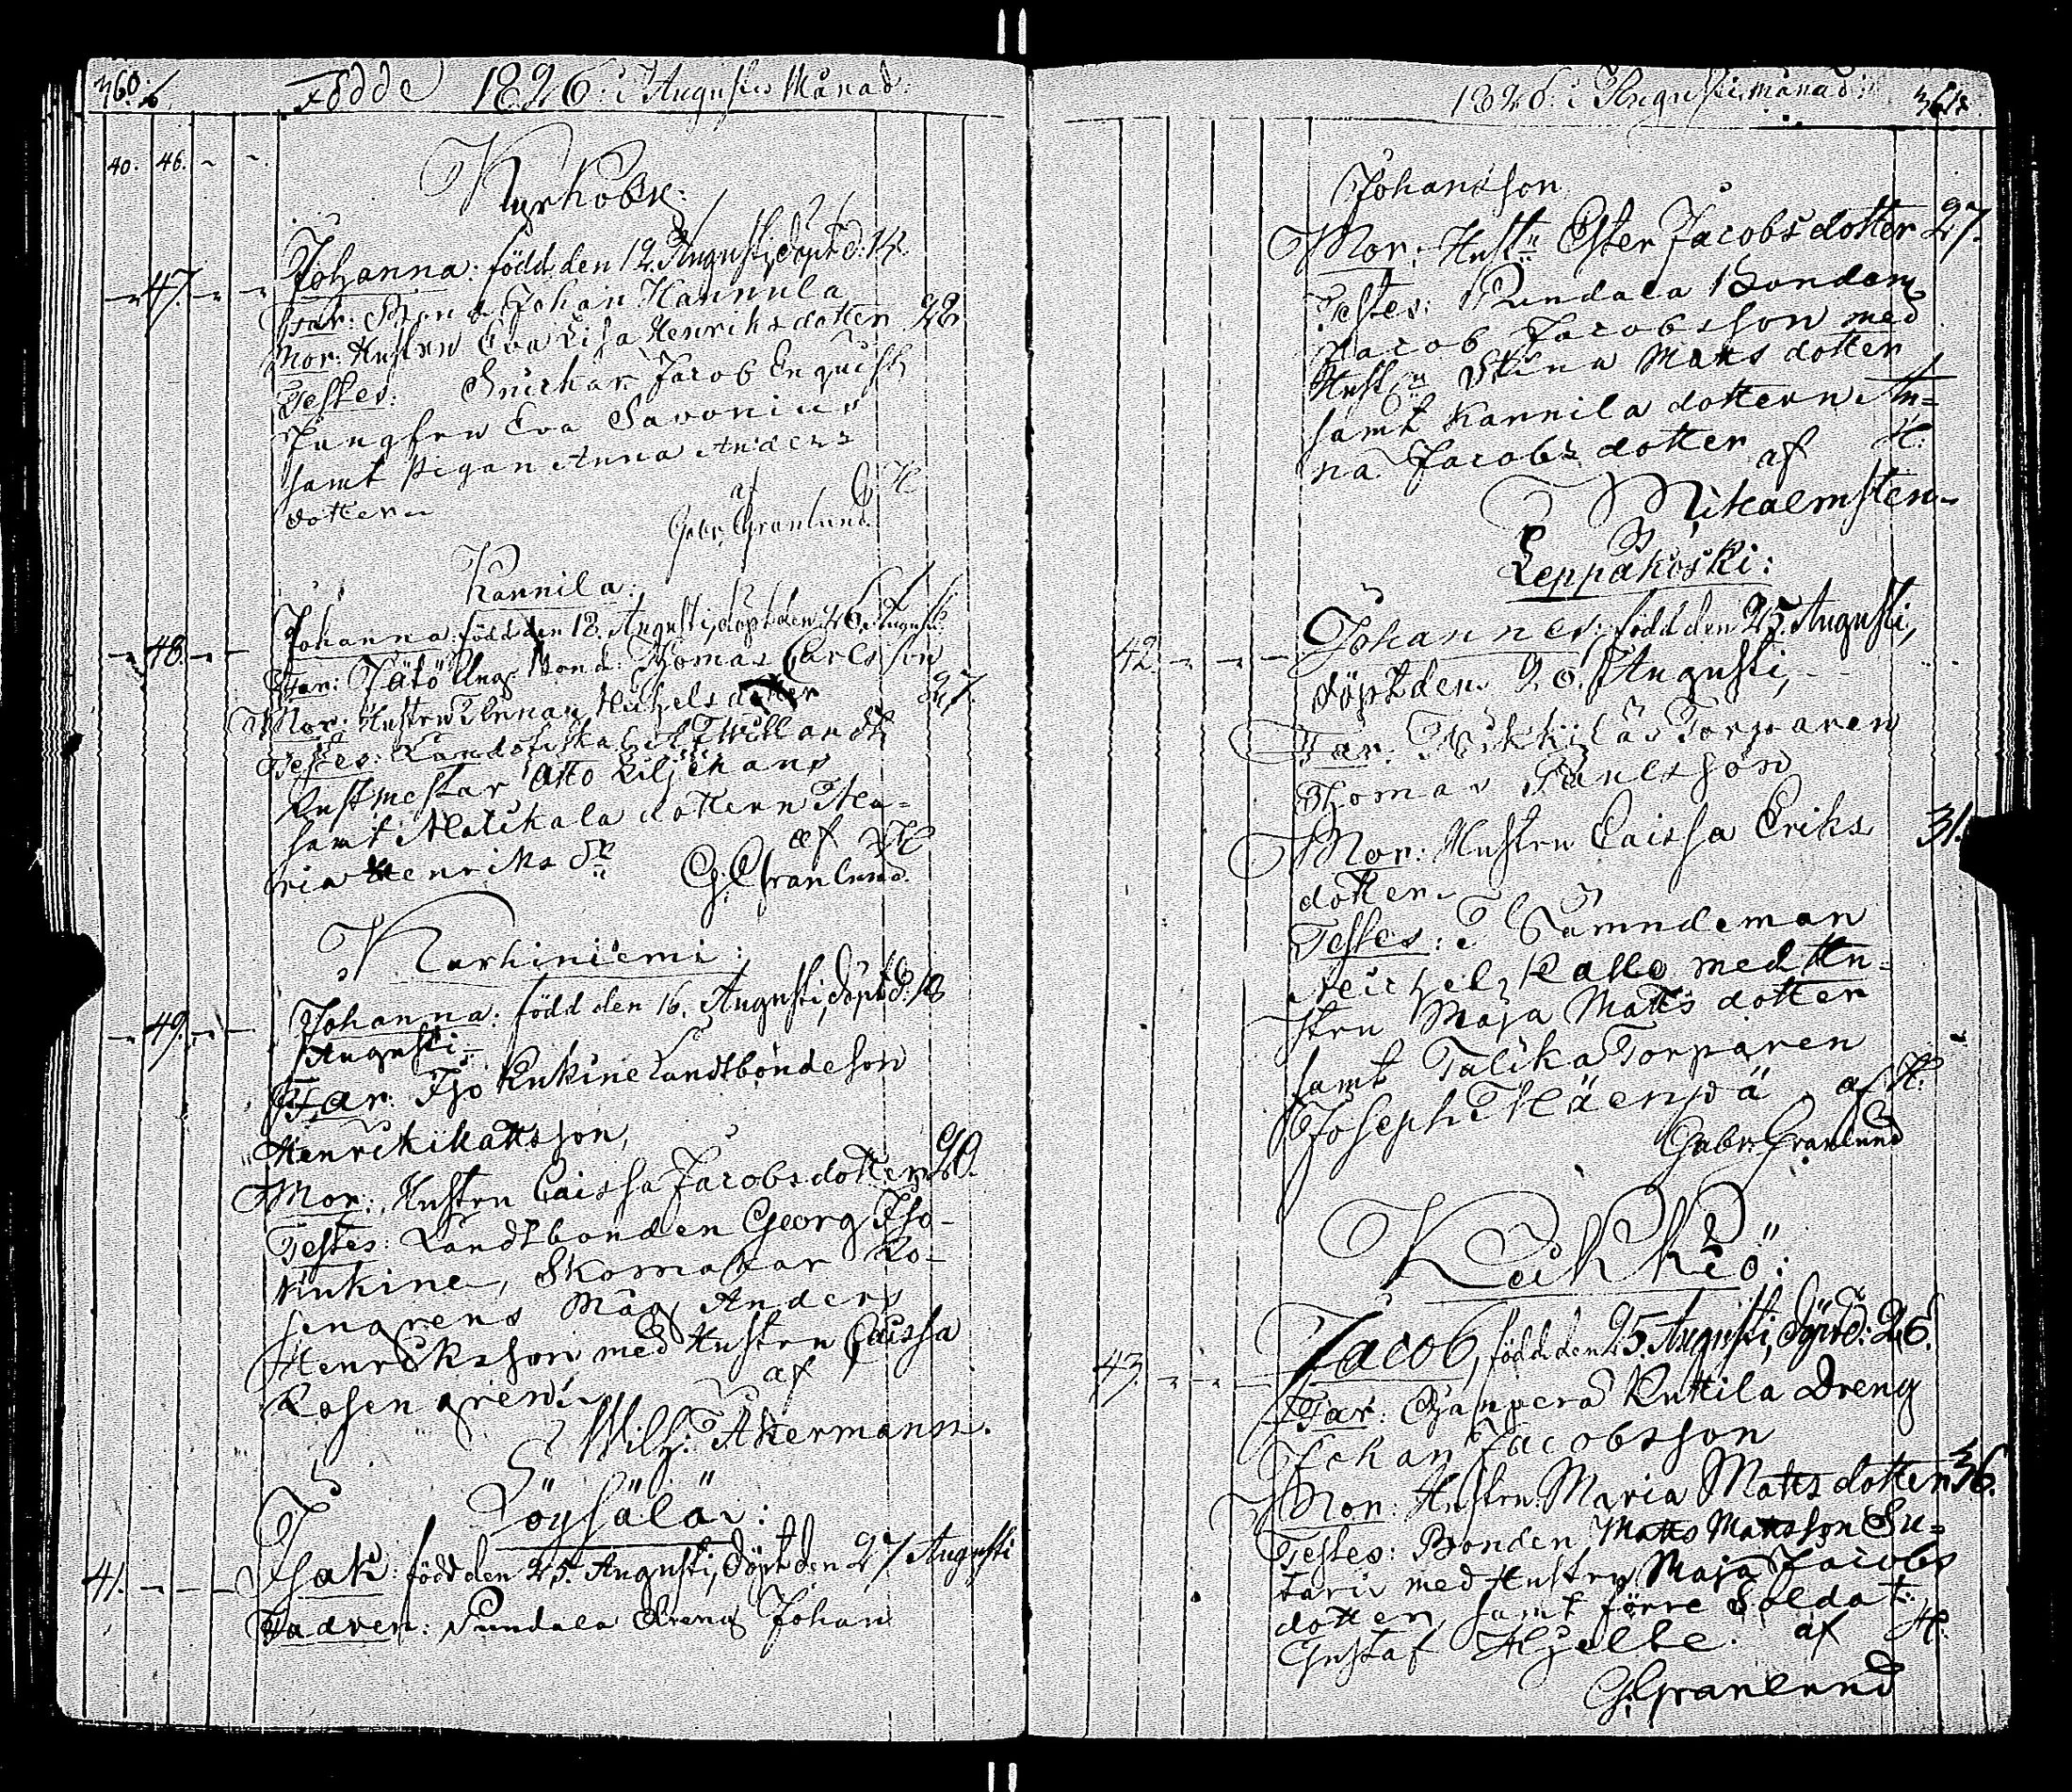 360.
Födde 1826. i Augusti Månad:
40. 46. - -
Kyrkoby:
47. Johanna: född den 12. Augusti, döpt d: 14.
Far: Bond. Johan Hannula
Mor: Hustru Eva Lisa Henriksdotter 28
Testes: Snickar Jacob Enquist
Jungfru Eva Savonius
samt Pigan Anna Anders
dotter
af H
Gabr. Granlund
Kannila:
48. Johanna: född den 12. Augusti, döpt den 16. Augusti
Far: Bond: Thomas Carlsson
Mor: Hustru Michelsdotter 27.
Testes:
Rustmestar Otto Liljehans
samt Alatikala dottern Ma-
ria Henriks dr
af H
G. Granlund
Karhiniemi:
49. Johanna: född den 16. Augusti, döpt d: 18
Augusti
Far: Iso Kukine Landtbondeson
Henrik Mattsson,
Mor: Hustru Caissa Jacobsdotter 20.
Testes: Landtbonden Georg Iso-
kukine, Skomakar Ro-
sengrens Måg Anders
Henriksson med Hustru Caissa
Rosengren af
Wilh: Åkermann.
Löysälä:
41. Isak: född den 25. Augusti, döpt den 27 Augusti
Fadren: Pundala Dreng Johan
1826. i Augusti månad: 361.
Johansson
Mor: Hustru Ester Jacobsdotter 27.
Testes: Pundala Bonden
Jacob Jacobsson med
Hustru Stina Matts dotter
samt Kannila dottern An=
na Jacobs dotter af H:
Leppäkoski:
42. Johannes: född den 25. Augusti,
döpt den 26. Augusti,
Far: Torparen
Thomas Paulsson
Mor: Hustru Caissa Eriks 31.
dotter
Testes: Nämndeman
Michel Kallo med Hu-
stru Maja Matts dotter
samt Talika Torparen
Joseph Mäenpä af H.
Gabr: Granlund
Kukkiö:
43. Jacob, född den 25. Augusti, döpt d: 26.
Far: Kuttila Dreng
Johan Jacobsson
Mor: Hustru Maria Mattsdotter 36.
Testes: Bonden Matts Mattsson Su-
tari med Hustru Maja Jacobs
dotter, samt förre Soldat:
Gustaf Hjelte. af H.
G. Granlund